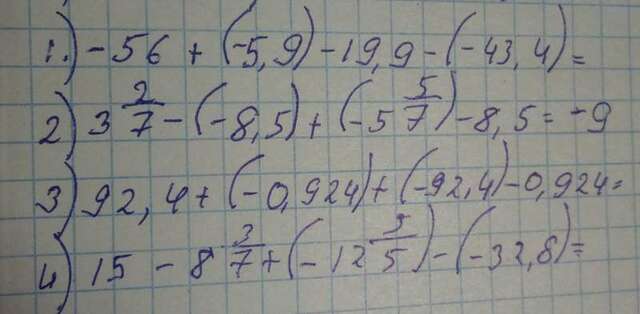 1.) -56 + (-5,9) - 19,9 - (-43,4) =
2) 3 2/7 - (-8,5) + (-5 5/7) - 8,5 = -9
3) 92,4 + (-0,924) + (-92,4) - 0,924 =
4) 15 - 8 3/7 + (-12 3/5) - (-32,8) =